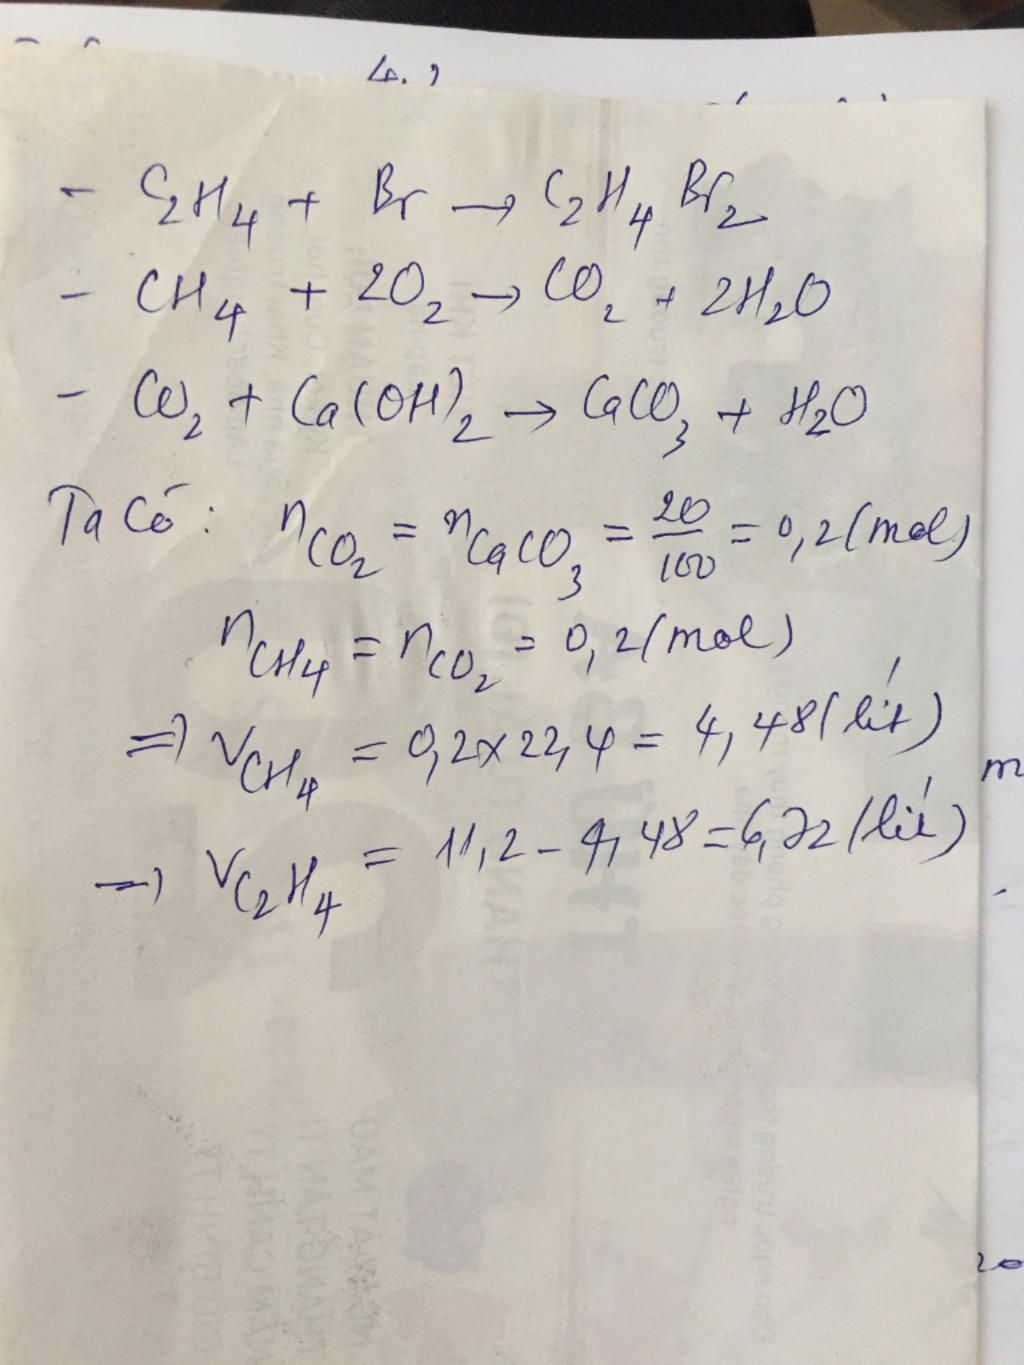 - C₂H₄ + Br → C₂H₄Br₂
- CH₄ + 2O₂ → CO₂ + 2H₂O
- CO₂ + Ca(OH)₂ → CaCO₃ + H₂O
Ta có: nCO₂ = nCaCO₃ = 20/100 = 0,2(mol)
nCH₄ = nCO₂ = 0,2(mol)
=> VCH₄ = 0,2x22,4 = 4,48(lít)
m
→ VC₂H₄ = 11,2 - 4,48 = 6,72(lít)
20